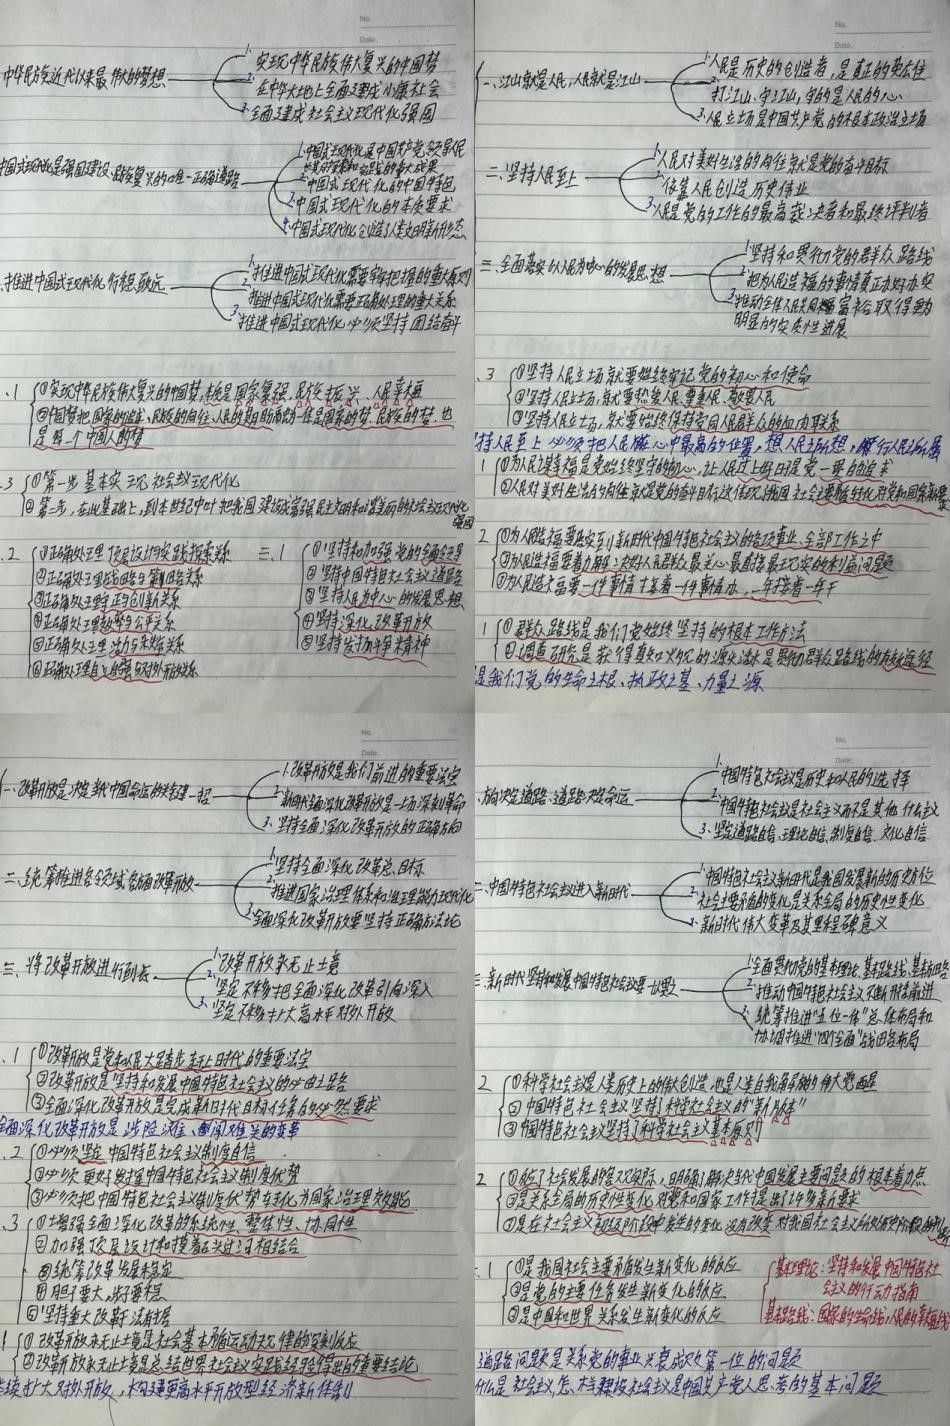 No.
Date.
中华民族近代以来最伟大的梦想
1. 实现中华民族伟大复兴的中国梦
2. 在中华大地上全面建成小康社会
3. 全面建成社会主义现代化强国
中国式现代化是强国建设、民族复兴的唯一正确道路
1. 中国式现代化是中国共产党领导人民
长期探索和实践的重大成果
2. 中国式现代化的中国特色
3. 中国式现代化的本质要求
4. 中国式现代化创造了人类文明新形态
推进中国式现代化行稳致远
1. 推进中国式现代化需要牢牢把握的重大原则
2. 推进中国式现代化需要正确处理的重大关系
3. 推进中国式现代化必须坚持团结奋斗
.1 ①实现中华民族伟大复兴的中国梦,本质是国家富强、民族振兴、人民幸福
②中国梦把国家的追求、民族的向往、人民的期盼融为一体是国家的梦、民族的梦,也
是每一个中国人的梦
.3 ①第一步基本实现社会主义现代化
②第二步,在此基础上,到本世纪中叶把我国建设成富强民主文明和谐美丽的社会主义现代化
强国
.2 ①正确处理顶层设计与实践探索关系
②正确处理战略与策略关系
③正确处理守正与创新关系
④正确处理效率与公平关系
⑤正确处理活力与秩序关系
⑥正确处理自立自强与对外开放关系
三.1 ①坚持和加强党的全面领导
②坚持中国特色社会主义道路
③坚持人民为中心的发展思想
④坚持深化改革开放
⑤坚持发扬斗争精神
No.
Date.
一、江山就是人民,人民就是江山
1. 人民是历史的创造者,是真正的英雄
2. 打江山、守江山,守的是人民的心
3. 人民立场是中国共产党的根本政治立场
二、坚持人民至上
1. 人民对美好生活的向往就是党的奋斗目标
2. 依靠人民创造历史伟业
3. 人民是党的工作的最高裁决者和最终评判者
三、全面落实以人民为中心的发展思想
1. 坚持和贯彻党的群众路线
2. 把为人民造福的事情真正办好办实
3. 推动全体人民共同富裕取得
明显的实质性进展
.3 ①坚持人民立场就要始终牢记党的初心和使命
②坚持人民立场,就要热爱人民、尊重人民、敬畏人民
③坚持人民立场,就要始终保持党同人民群众的血肉联系
持人民至上必须把人民放心中最高的位置,想人民之所想,行人民之所嘱
1 ①为人民谋幸福是党始终坚守的初心,让人民过上好日子是党一贯的追求
②人民对美好生活的向往就是党的奋斗目标这体现我国社会主要矛盾转化对党和国家新要求
2 ①为人民造福要落实到新时代中国特色社会主义的各项事业、全部工作之中
②为民造福要着力解决好人民群众最关心最直接最现实的利益问题
③为人民造福要一件事情接着一件事情办,一年接着一年干
1 ①群众路线是我们党始终坚持的根本工作方法
②调查研究是获得真知灼见的源头活水是贯彻群众路线的有效途径
是我们党的生命之根、执政之基、力量之源
No.
Date.
一、改革开放是决定当代中国命运的关键一招
1. 改革开放是我们前进的重要法宝
2. 新时代全面深化改革开放是一场深刻革命
3. 坚持全面深化改革开放的正确方向
二、统筹推进各领域各方面改革开放
1. 坚持全面深化改革总目标
2. 推进国家治理体系和治理能力现代化
3. 全面深化改革开放要坚持正确方法论
三、将改革开放进行到底
1. 改革开放永无止境
2. 坚定不移把全面深化改革引向深入
3. 坚定不移扩大高水平对外开放
.1 ①改革开放是党和人民大踏步赶上时代的重要法宝
②改革开放是坚持和发展中国特色社会主义的必由之路
③全面深化改革开放是完成新时代目标任务的必然要求
全面深化改革开放是涉险滩、闯难关的变革
.2 ①必须坚定中国特色社会主义制度自信
②必须更好发挥中国特色社会主义制度优势
③必须把中国特色社会主义制度优势转化为国家治理效能
.3 ①增强全面深化改革的系统性、整体性、协同性
②加强顶层设计和摸着石头过河相结合
③统筹改革发展稳定
④胆子要大,步子要稳
⑤坚持重大改革于法有据
1 ①改革开放永无止境是社会基本矛盾运动规律的深刻反应
②改革开放永无止境是总结世界社会主义实践经验得出的重要结论
续扩大对外开放,构建更高水平开放型经济新体制
No.
Date.
.方向决定道路、道路决定命运
1. 中国特色社会主义是历史和人民的选择
2. 中国特色社会主义是社会主义而不是其他什么主义
3. 坚定道路自信、理论自信、制度自信、文化自信
二.中国特色社会主义进入新时代
1. 中国特色社会主义新时代是我国发展新的历史方位
2. 社会主要矛盾的变化是关系全局的历史性变化
3. 新时代伟大变革及其里程碑意义
三.新时代坚持和发展中国特色社会主义要一以贯之
1. 全面贯彻党的基本理论、基本路线、基本方略
2. 推动中国特色社会主义不断开拓前进
3. 统筹推进“五位一体”总体布局和
协调推进“四个全面”战略布局
2 ①科学社会主义是人类历史上的伟大创造,也是人类自我解放的伟大觉醒
②中国特色社会主义坚持了科学社会主义的“新版本”
③中国特色社会主义坚持了科学社会主义基本原则
2 ①反映了社会发展的客观实际,明确了解决当代中国发展主要问题的根本着力点
②是关系全局的历史性变化,对党和国家工作提出许多新要求
③是在社会主义初级阶段中发生的变化没有改变对我国社会主义所处历史阶段的判断
.1 ①是我国社会主要矛盾发生新变化的反应
②是党的主要任务发生新变化的反应
③是中国和世界关系发生新变化的反应
基本理论:坚持和发展中国特色社
会主义的行动指南
基本路线:国家的生命线,人民的幸福线
道路问题是关系党的事业兴衰成败第一位的问题
什么是社会主义,怎样建设社会主义是中国共产党人思考的基本问题